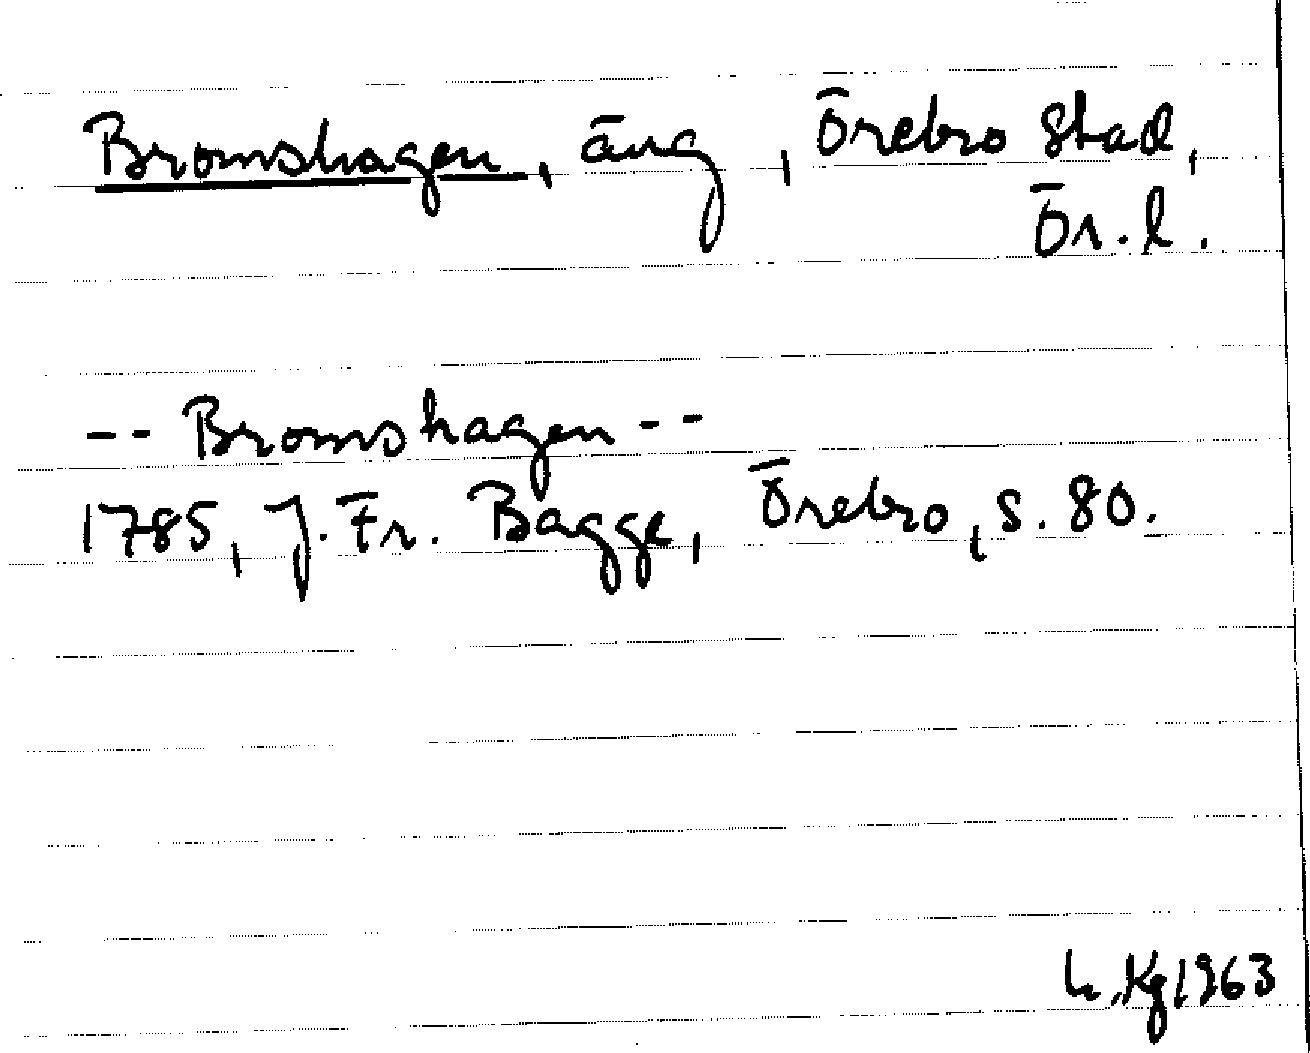 Bromshagen, äng, Örebro stad,
Ör.l.
-- Bromshagen --
1785, J. Fr. Bagge, Örebro, s. 80.
Kg 1963